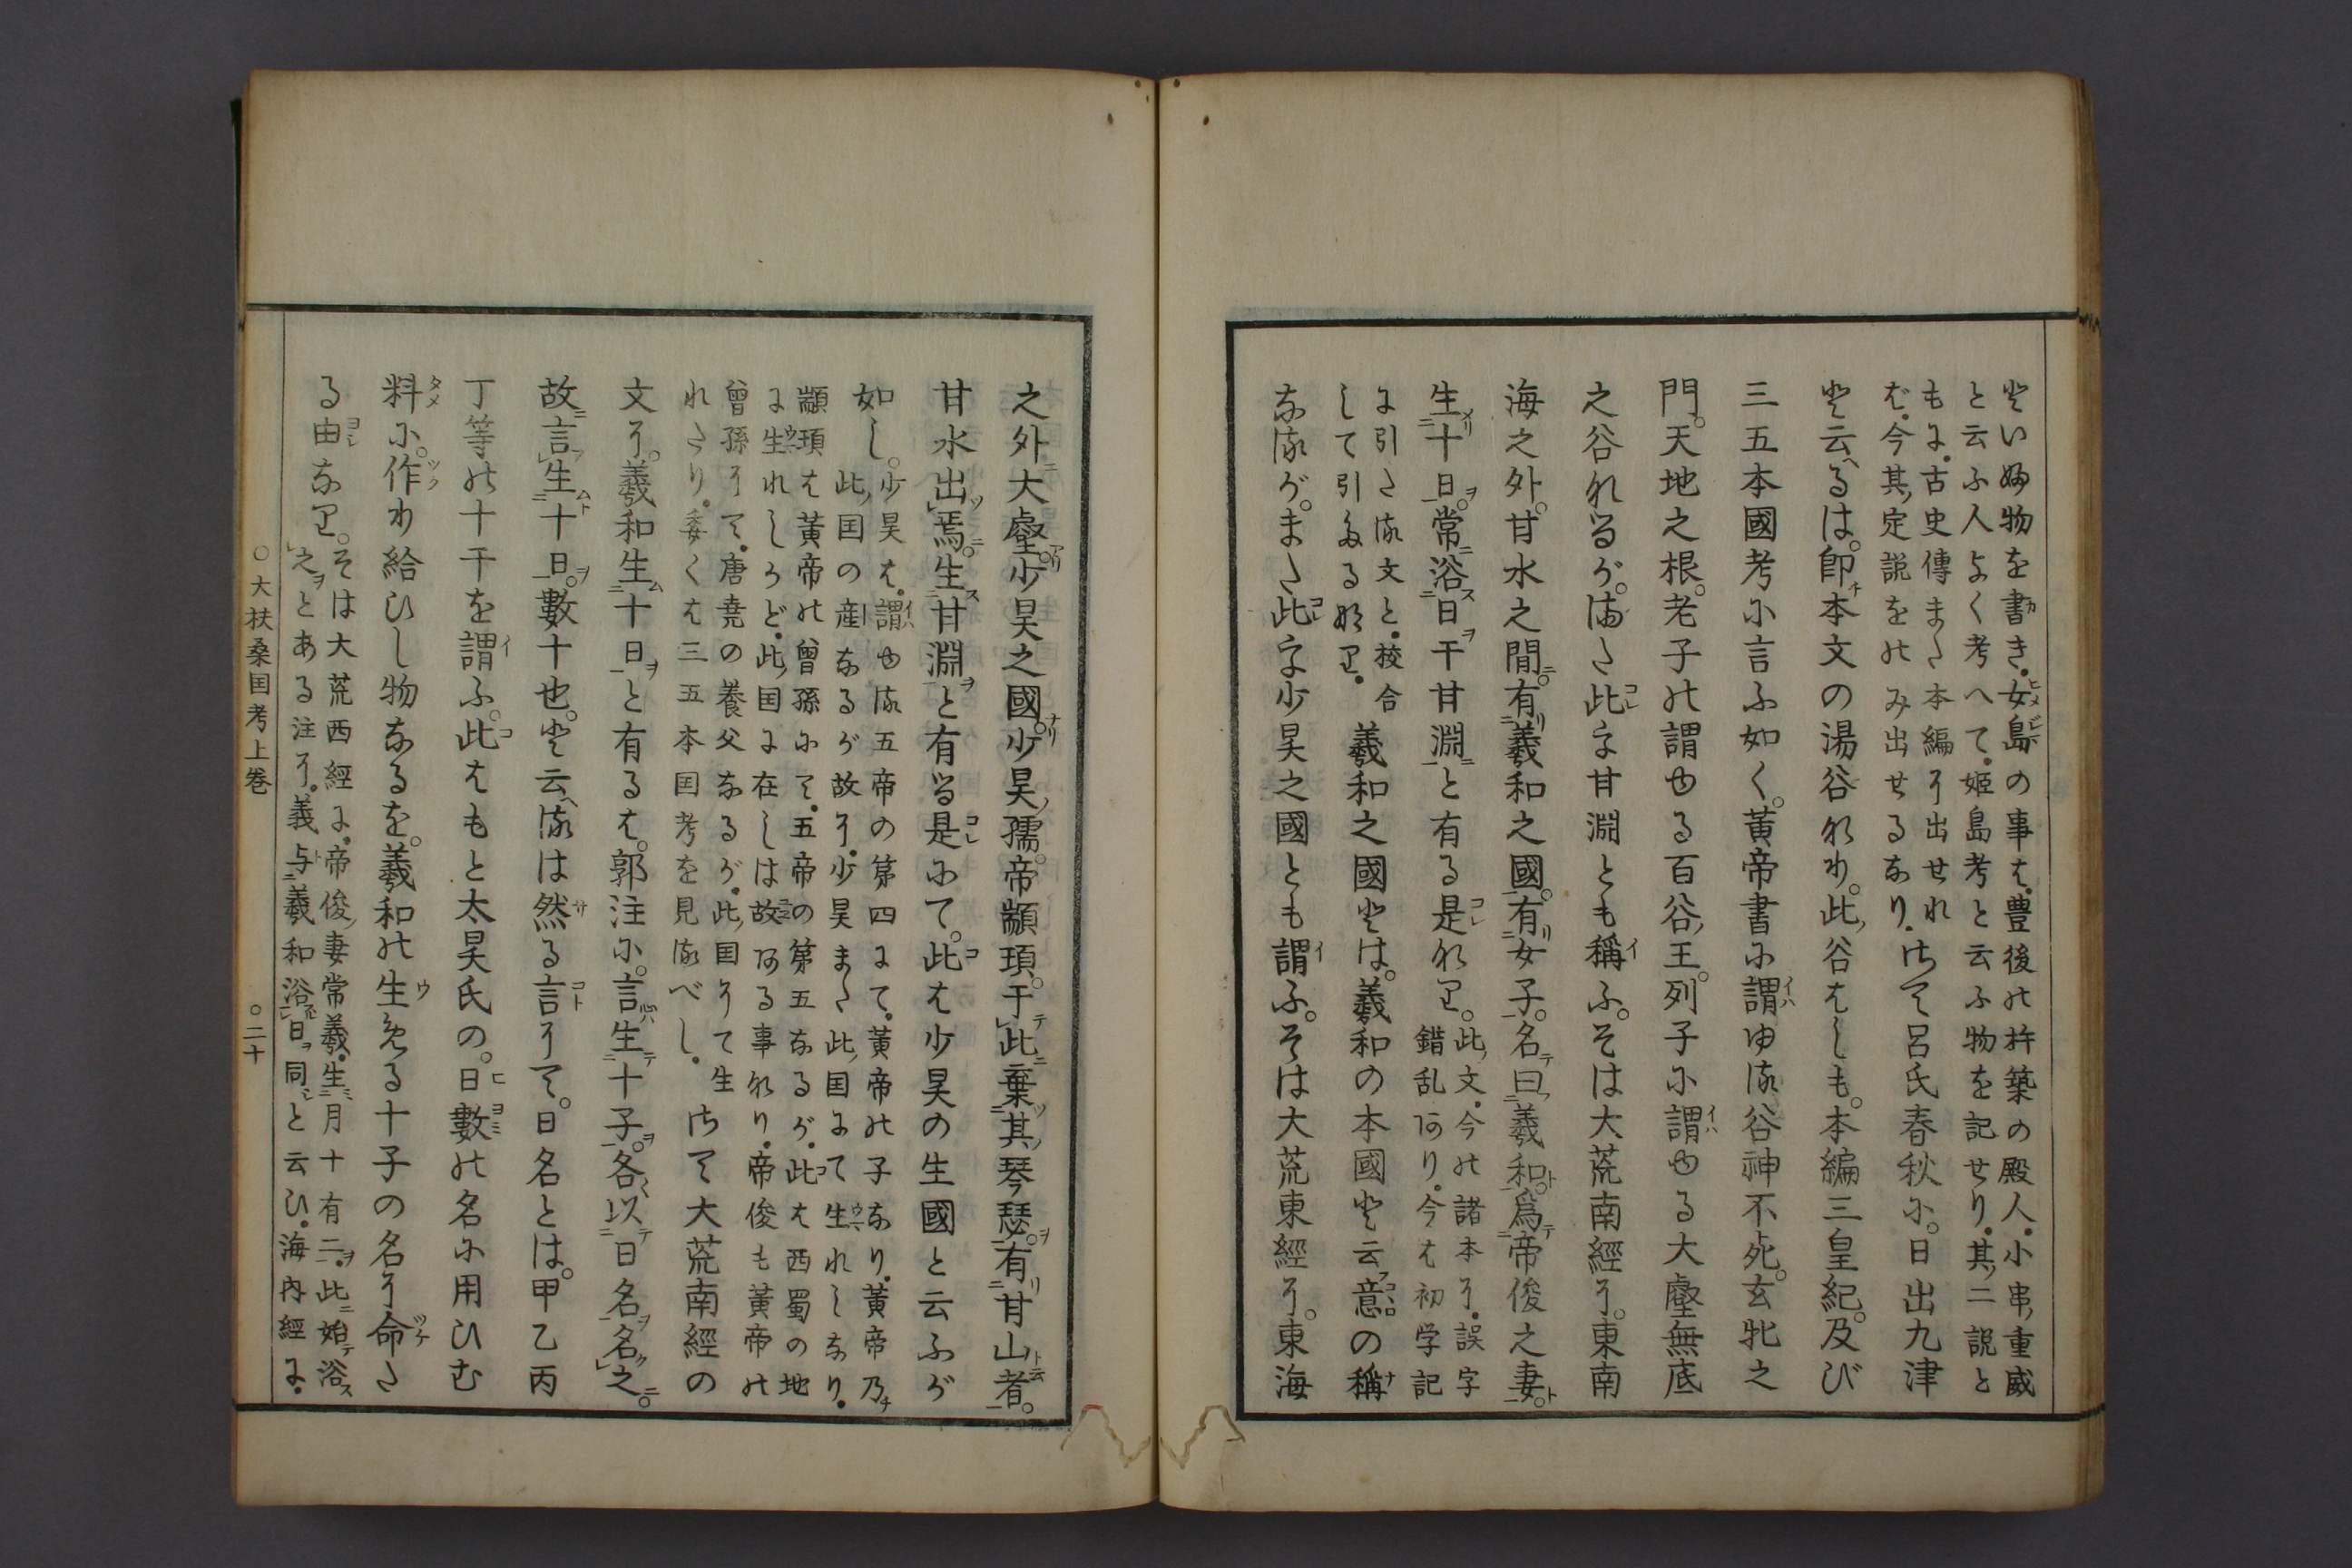 といふ物を書き。女島の事は。豊後の杵築の殿人。小串重威
と云ふ人よく考へて。姫島考と云ふ物を記せり。其二説と
もに。古史傳また本編に出せれ
ば。今其定説をのみ出せるなり。さて呂氏春秋に。日出九津
と云へるは。卽本文の湯谷なり。此谷はしも。本編三皇紀。及び
三五本國考に言ふ如く。黃帝書に謂ゆる谷神不死。玄牝之
門。天地之根。老子の謂ゆる百谷王。列子に謂ゆる大壑無底
之谷なるが。また此を甘淵とも稱ふ。そは大荒南經に。東南
海之外。甘水之間。有羲和之國。有女子。名曰羲和。爲帝俊之妻。
生十日。常浴日干甘淵と有る是なり。此文。今の諸本に。誤字
錯乱あり。今は初学記
に引たる文と。校合
して引たるなり。羲和之國とは。羲和の本國と云意の稱
なるが。また此を少昊之國とも謂ふ。そは大荒東經に。東海
之外大壑。少昊之國。少昊孺帝顓頊。于此棄其琴瑟。有甘山者。
甘水出焉。生甘淵と有る是にて。此は少昊の生國と云ふが
如し。少昊は。謂ゆる五帝の第四にて。黃帝の子なり。黃帝乃
此国の産なるが故に。少昊また此国にて生れしなり。
顓頊は黃帝の曾孫にて。五帝の第五なるが。此は西蜀の地
に生れしかど。此国に在しは故ある事なり。帝俊も黃帝の
曾孫にて。唐堯の養父なるが。此国にて生
れたり。委くは三五本国考を見るべし。さて大荒南經の
文に。羲和生十日と有るは。郭注に。言生十子。各以日名名之。
故言生十日。數十也。と云へるは然る言にて。日名とは。甲乙丙
丁等の十干を謂ふ。此はもと太昊氏の。日數の名に用ひむ
料に。作り給ひし物なるを。羲和の生める十子の名に命た
る由なり。そは大荒西經に。帝俊妻常羲。生月十有二。此始浴
之とある注に。義与羲和浴日同と云ひ。海内經に。
○大扶桑国考上巻 ○二十